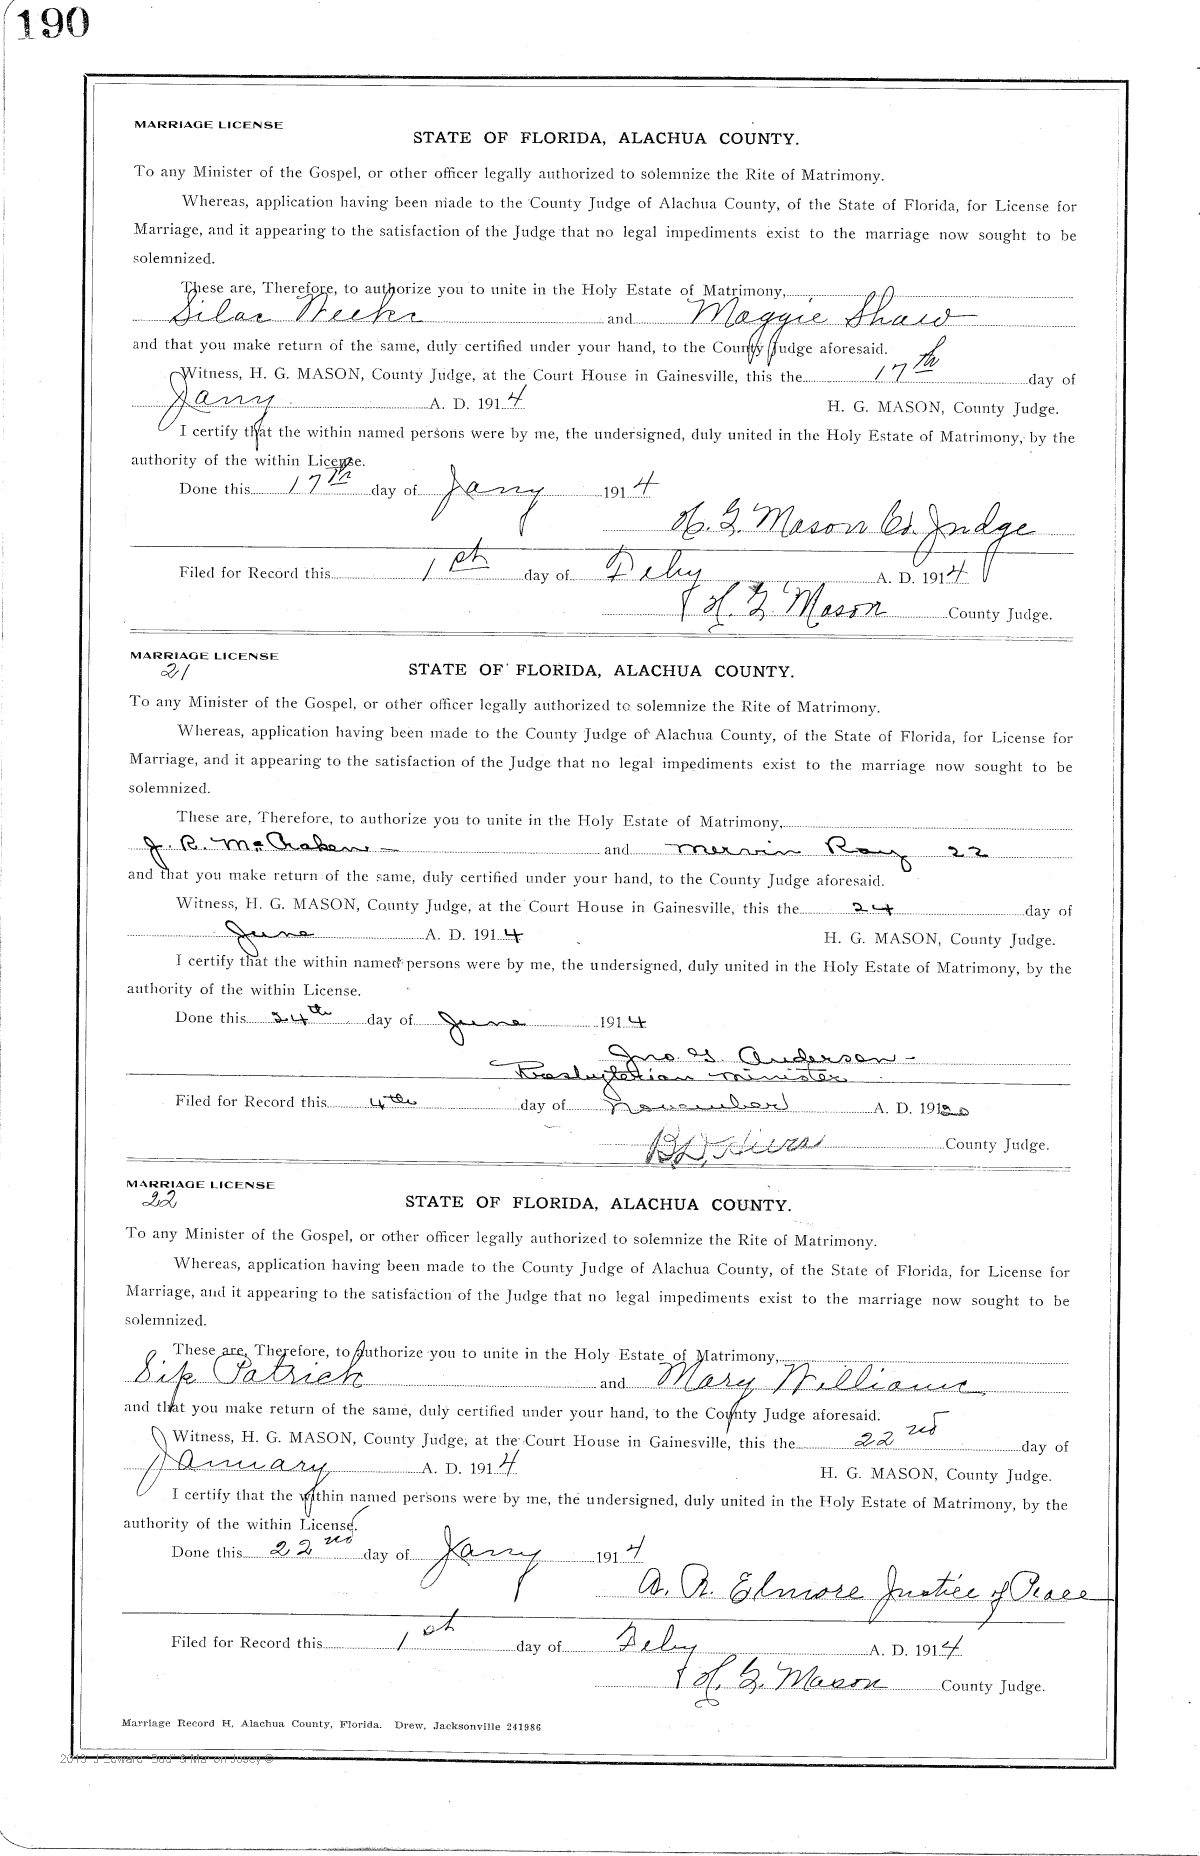 190
MARRIAGE LICENSE
STATE OF FLORIDA, ALACHUA COUNTY.
To any Minister of the Gospel, or other officer legally authorized to solemnize the Rite of Matrimony.
Whereas, application having been made to the County Judge of Alachua County, of the State of Florida, for License for
Marriage, and it appearing to the satisfaction of the Judge that no legal impediments exist to the marriage now sought to be
solemnized.
These are, Therefore, to authorize you to unite in the Holy Estate of Matrimony,
Silas Weeks and Maggie Shaw
and that you make return of the same, duly certified under your hand, to the County Judge aforesaid.
Witness, H. G. MASON, County Judge, at the Court House in Gainesville, this the 17th day of
Jany A. D. 1914 H. G. MASON, County Judge.
I certify that the within named persons were by me, the undersigned, duly united in the Holy Estate of Matrimony, by the
authority of the within License.
Done this 17th day of Jany 1914
H. G. Mason Co. Judge
Filed for Record this 1st day of Feby A. D. 1914
H. G. Mason County Judge.
MARRIAGE LICENSE
21
STATE OF FLORIDA, ALACHUA COUNTY.
To any Minister of the Gospel, or other officer legally authorized to solemnize the Rite of Matrimony.
Whereas, application having been made to the County Judge of Alachua County, of the State of Florida, for License for
Marriage, and it appearing to the satisfaction of the Judge that no legal impediments exist to the marriage now sought to be
solemnized.
These are, Therefore, to authorize you to unite in the Holy Estate of Matrimony,
J. R. McCraken - and Mervin Ray 22
and that you make return of the same, duly certified under your hand, to the County Judge aforesaid.
Witness, H. G. MASON, County Judge, at the Court House in Gainesville, this the 24 day of
June A. D. 1914 H. G. MASON, County Judge.
I certify that the within named persons were by me, the undersigned, duly united in the Holy Estate of Matrimony, by the
authority of the within License.
Done this 24th day of June 1914
Jno G. Anderson -
Presbyterian Minister
Filed for Record this 4th day of November A. D. 1920
County Judge.
MARRIAGE LICENSE
22
STATE OF FLORIDA, ALACHUA COUNTY.
To any Minister of the Gospel, or other officer legally authorized to solemnize the Rite of Matrimony.
Whereas, application having been made to the County Judge of Alachua County, of the State of Florida, for License for
Marriage, and it appearing to the satisfaction of the Judge that no legal impediments exist to the marriage now sought to be
solemnized.
These are, Therefore, to authorize you to unite in the Holy Estate of Matrimony,
Sip Patrick and Mary Williams
and that you make return of the same, duly certified under your hand, to the County Judge aforesaid.
Witness, H. G. MASON, County Judge, at the Court House in Gainesville, this the 22nd day of
January A. D. 1914 H. G. MASON, County Judge.
I certify that the within named persons were by me, the undersigned, duly united in the Holy Estate of Matrimony, by the
authority of the within License.
Done this 22nd day of Jany 1914
A. R. Elmore Justice of Peace
Filed for Record this 1st day of Feby A. D. 1914
H. G. Mason County Judge.
Marriage Record H, Alachua County, Florida. Drew, Jacksonville 241986